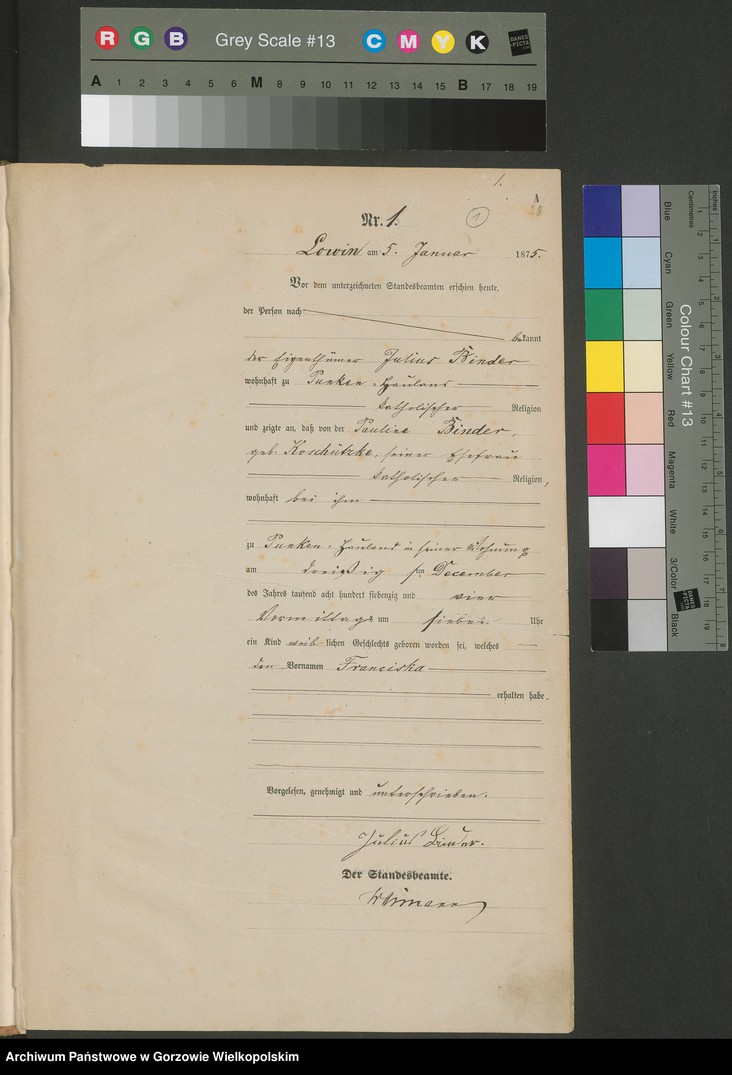 R G B Grey Scale #13 C M Y K DANES PICTA
A 1 2 3 4 5 6 M 8 9 10 11 12 13 14 15 B 17 18 19
1.
A
Nr. 1.
1
Lowin am 5. Januar 1875.
Vor dem unterzeichneten Standesbeamten erschien heute,
der Person nach
bekannt
der Eigenthümer Julius Binder
wohnhaft zu Punken-Hauland
katholischer Religion
und zeigte an, daß von der Pauline Binder,
geb. Koschützke, seiner Ehefrau
katholischer Religion,
wohnhaft bei ihm
zu Punken-Hauland in seiner Wohnung
am dreißigsten December
des Jahres tausend acht hundert siebenzig und vier
Vormittags um sieben Uhr
ein Kind weiblichen Geschlechts geboren worden sei, welches
den Vornamen Franciska
erhalten habe.
Vorgelesen, genehmigt und unterschrieben.
Julius Binder.
Der Standesbeamte.
Colour Chart #13
Blue Cyan Green Yellow Red Magenta White 3/Color Black
Centimetres
Inches
DANES PICTA
Archiwum Państwowe w Gorzowie Wielkopolskim